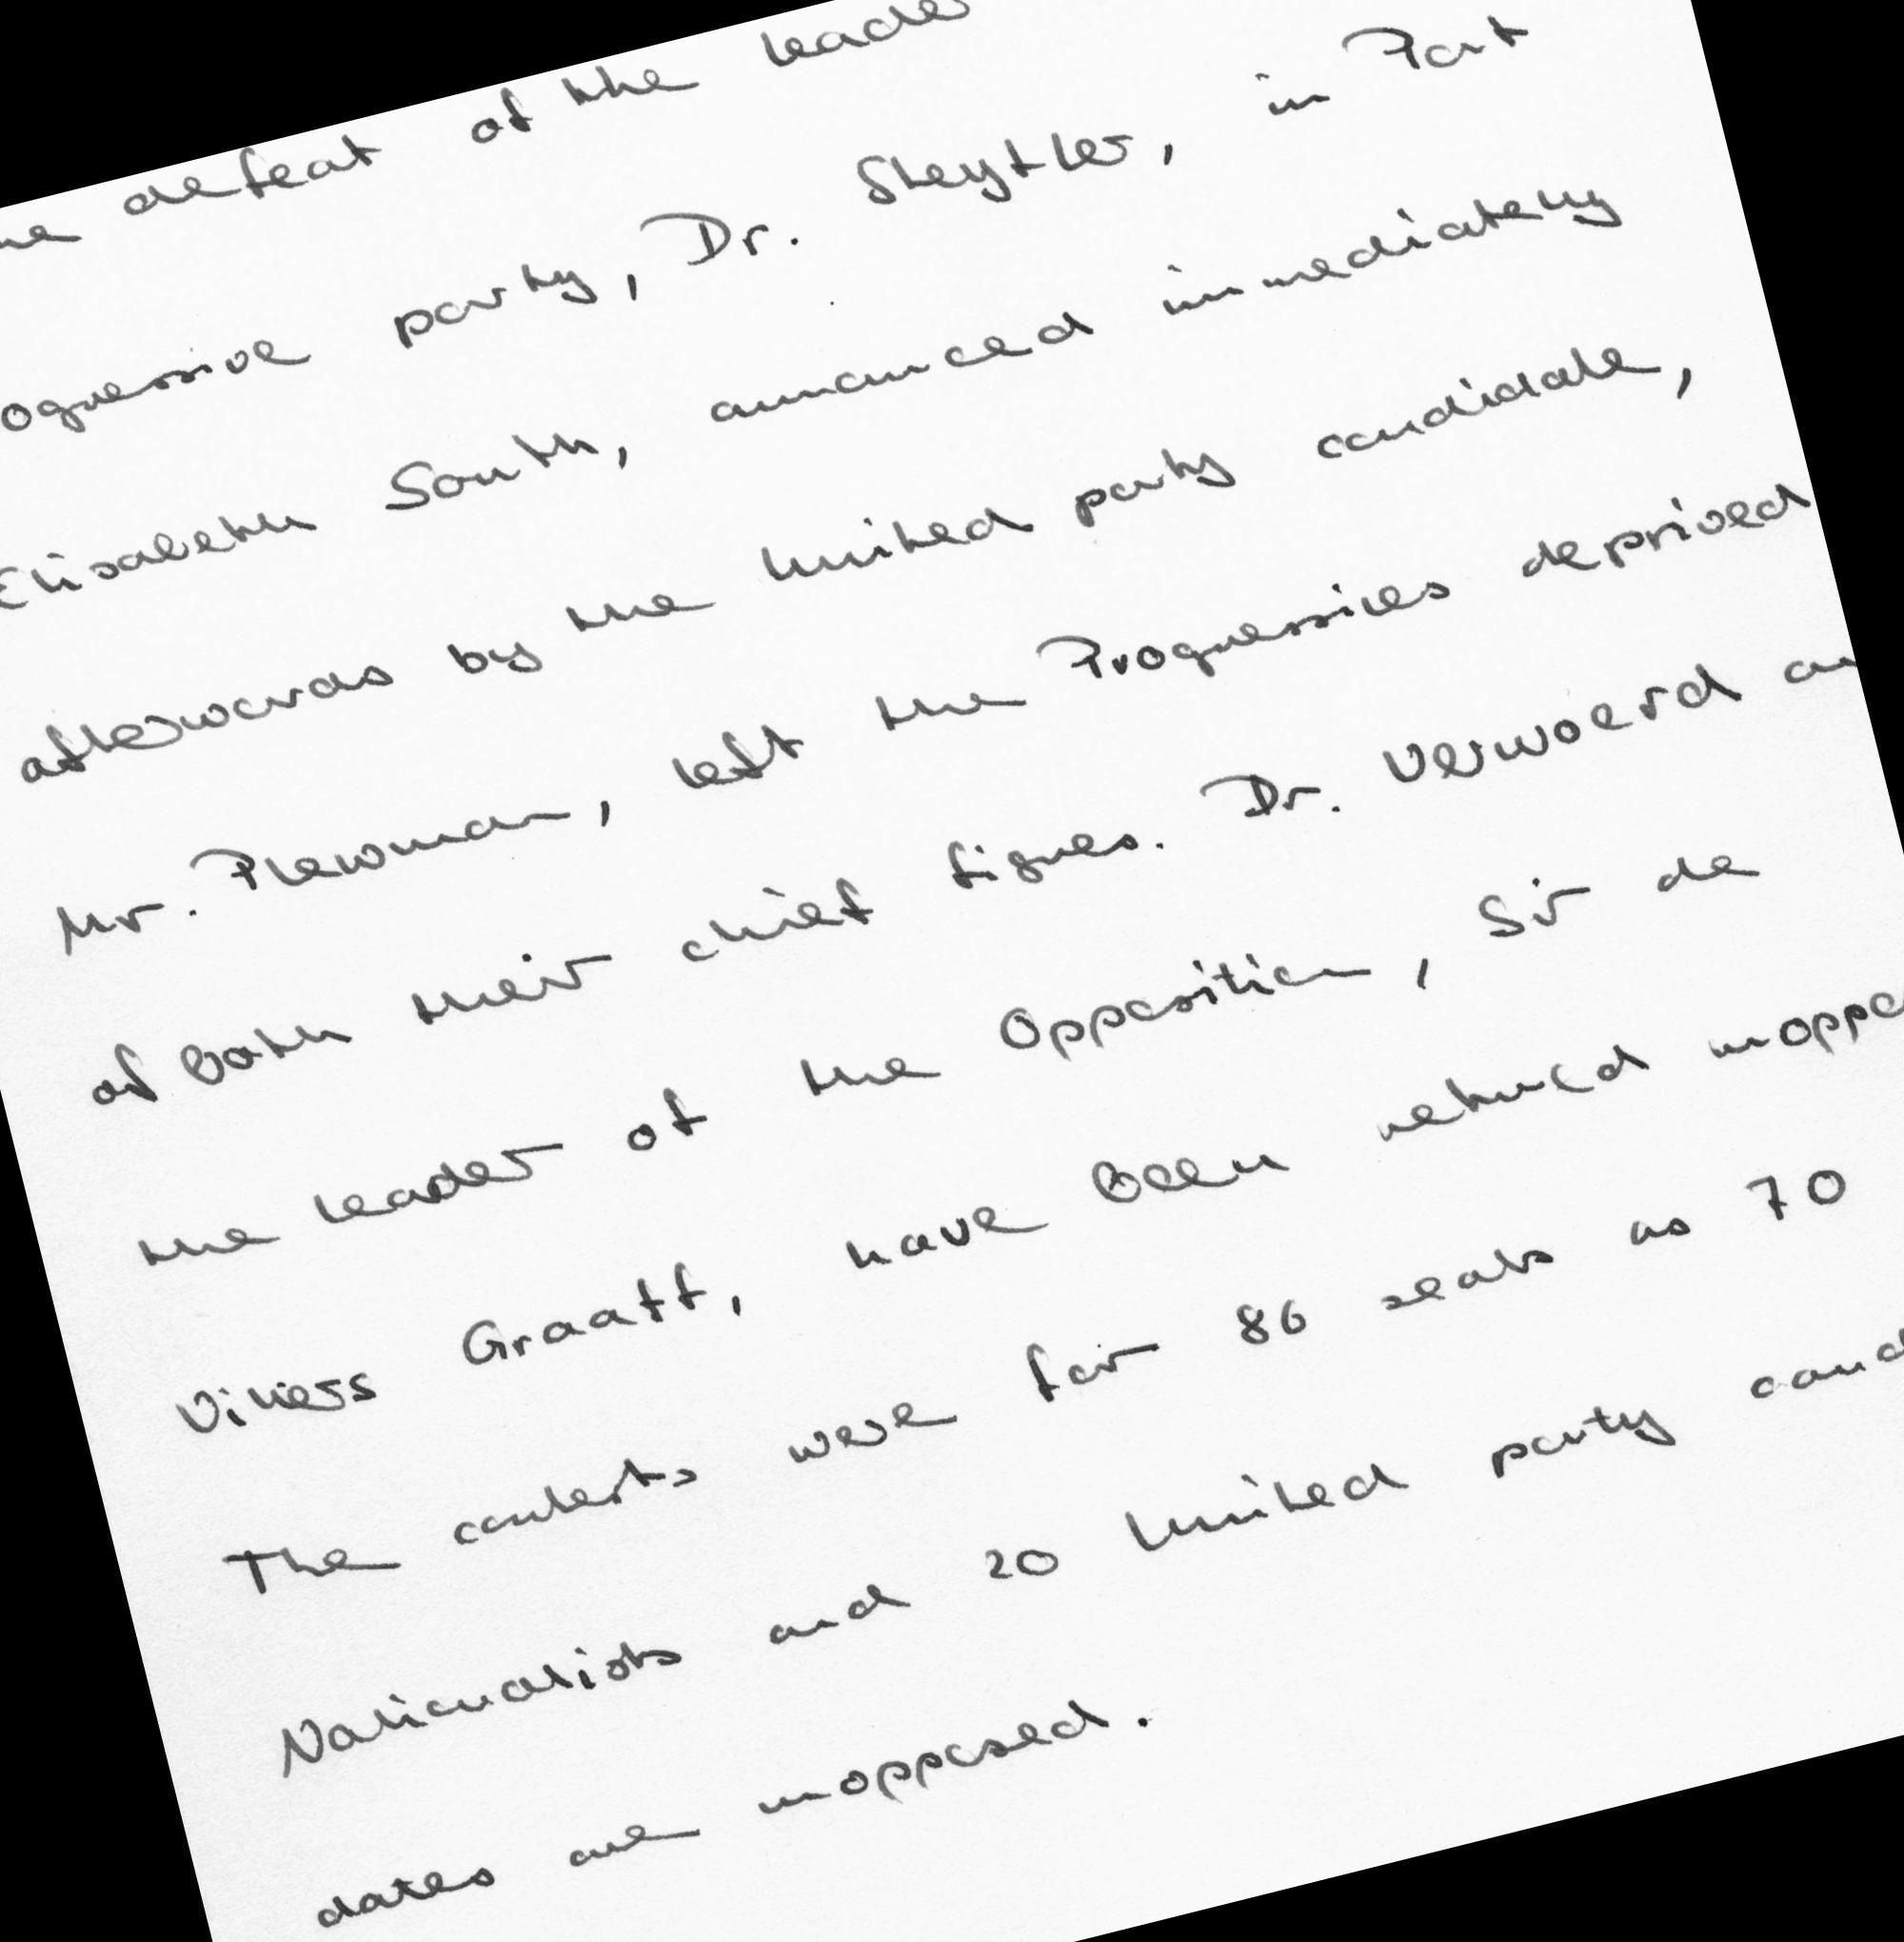 defeat of the leader
party, Dr. Steytler, in Port
Elisabeth South, announced immediately
afterwards by the United party candidate,
Mr. Plewman, left the Progressives deprived
of both their chief figures. Dr. Verwoerd
the leader of the Opposition, Sir de
Villiers Graaff, have been returned
The contests were for 86 seats as 70
Nationalists and 20 United party
dates are unopposed.